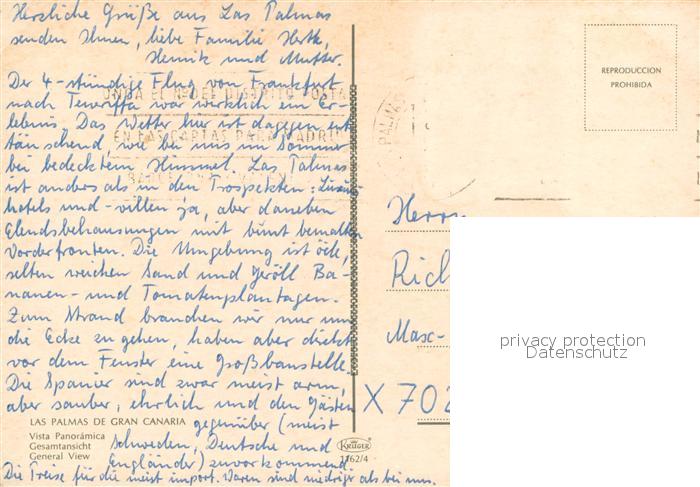 Herzliche Grüße aus Las Palmas
senden Ihnen, liebe Familie Herth,
Henrik und Mutter.
Der 4-stündige Flug von Frankfurt
nach Teneriffa war wirklich ein Er-
lebnis. Das Wetter hier ist dagegen ent
täuschend, wie bei uns im Sommer
bei bedecktem Himmel. Las Palmas
ist anders als in den Prospekten: Luxus-
hotels und -villen ja, aber daneben
Elendsbehausungen mit bunt bemalten
Vorderfronten. Die Umgebung ist öde,
selten weichen Sand und Geröll Ba-
nanen- und Tomatenplantagen.
Zum Strand brauchen wir nur um
die Ecke zu gehen, haben aber direkt
vor dem Fenster eine Großbaustelle.
Die Spanier sind zwar meist arm,
aber sauber, ehrlich und den Gästen
gegenüber (meist
Schweden, Deutsche und
Engländer) zuvorkommend.
Die Preise für die meist import. Waren sind niedriger als bei uns.
LAS PALMAS DE GRAN CANARIA
Vista Panorámica
Gesamtansicht
General View
KRÜGER
1162/4
EN LAS CARTAS PARA MADRID
PALMA
REPRODUCCION
PROHIBIDA
Herrn
Rich
Max-
X 702
privacy protection
Datenschutz